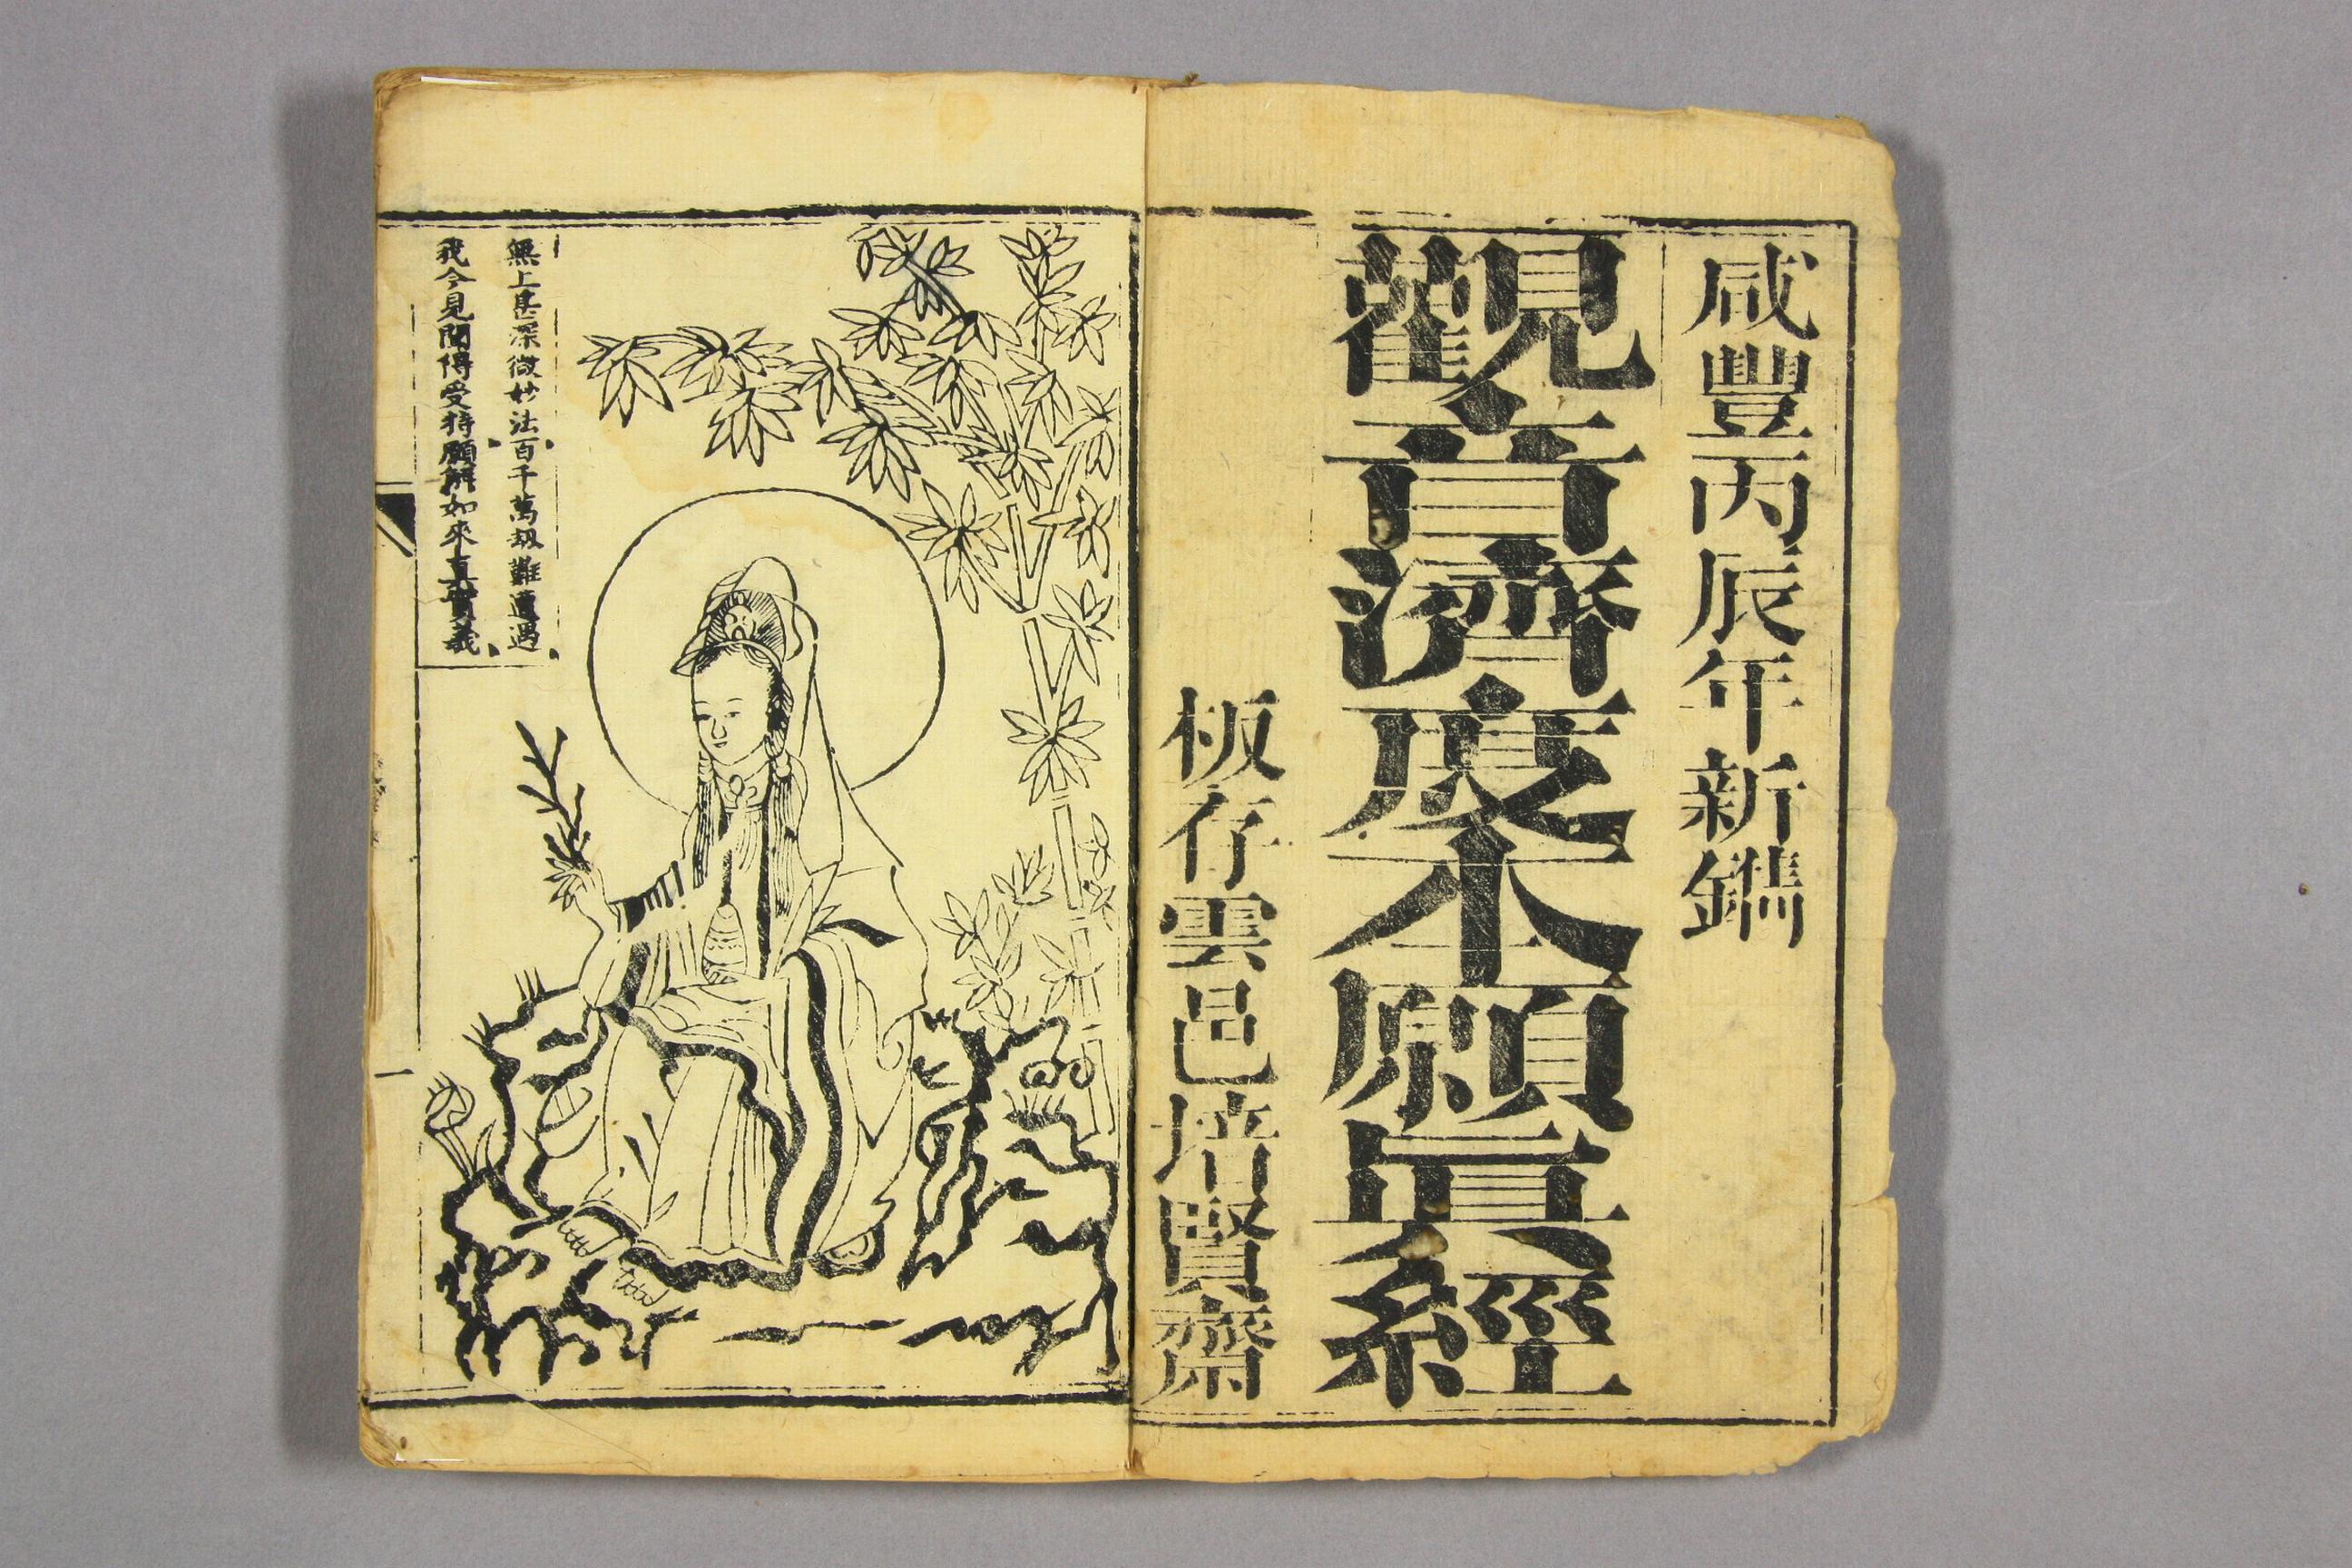 咸豐丙辰年新鐫
觀音濟度本願眞經
板存雲邑培賢齋
無上甚深微妙法百千萬刼難遭遇
我今見聞得受持願解如來真實義
一